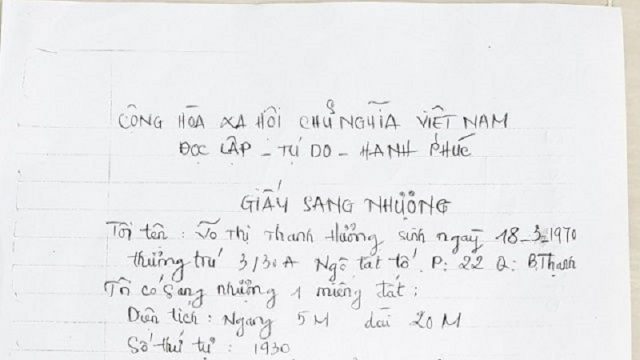 CÔNG HÒA XA HÔI CHỦ NGHĨA VIỆT NAM
ĐỌC LẬP - TỰ DO - HANH PHÚC
GIẤY SANG NHƯỢNG
Tôi tên : Võ Thị Thanh Hưởng sinh ngaỳ 18-3-1970
thường trú 3/30A Ngô tất tố. P: 22 Q: B.Thạnh
Tôi có Sang nhượng 1 miếng đất :
Diện tích : Ngang 5M dài 20M
Số thứ tự : 1930